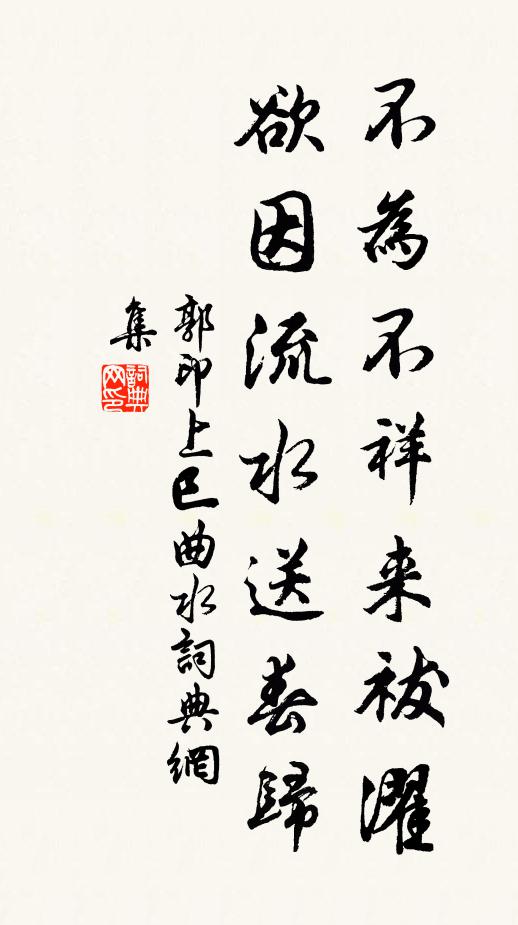 不為不祥来祓濯
欲因流水送春歸
郭印上巳曲水詞典網
集
詞典
网印